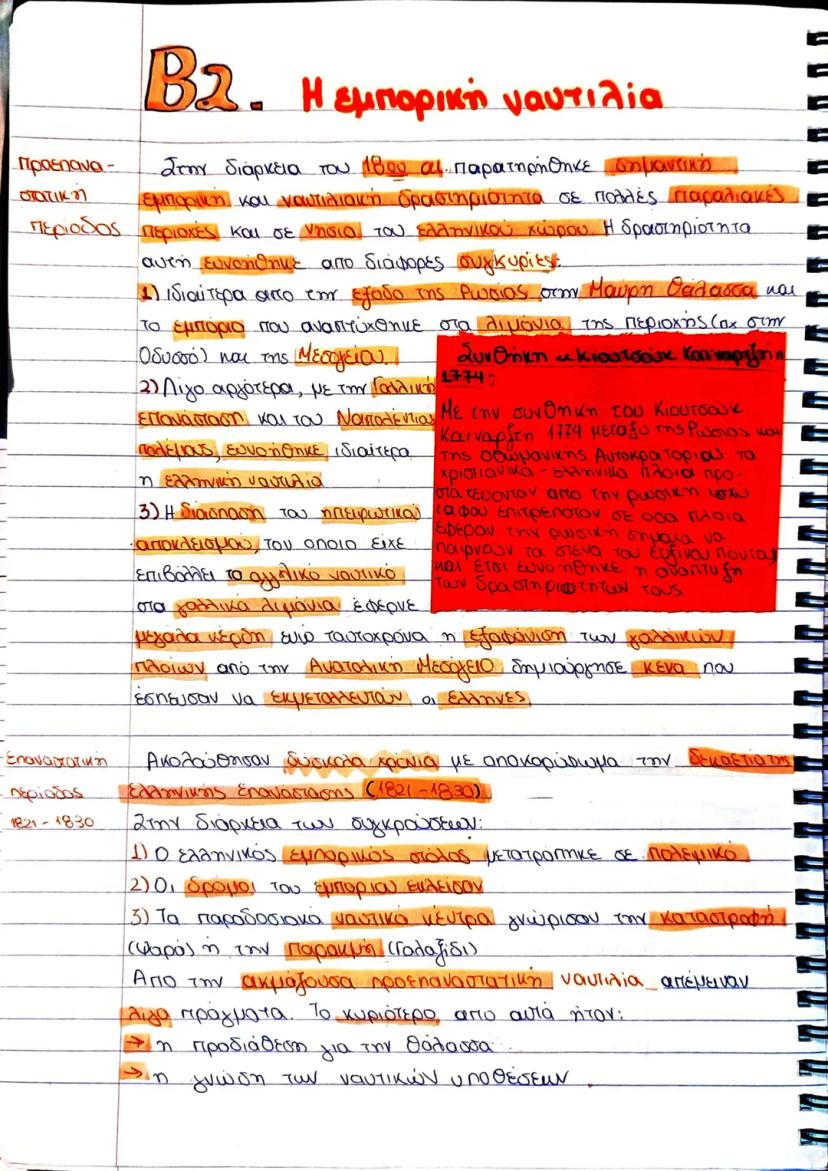 Β2. Η εμπορική ναυτιλία
Προεπανα-
στατική
περίοδος
Στην διάρκεια του 18ου αι. παρατηρήθηκε σημαντική
εμπορική και ναυτιλιακή δραστηριότητα σε πολλές παραλιακές
περιοχές και σε νησιά του ελληνικού χώρου. Η δραστηριότητα
αυτή ευνοήθηκε απο διάφορες συγκυρίες:
1) ιδιαίτερα απο την έξοδο της Ρωσίας στην Μαύρη Θάλασσα και
το εμπόριο που αναπτύχθηκε στα λιμάνια της περιοχής (πχ στην
Οδυσσό) και της Μεσογείου.
2) Λίγο αργότερα, με την Γαλλική
επανάσταση και του Ναπολεόντιους
πολέμους, ευνοήθηκε ιδιαίτερα
η ελληνική ναυτιλία
3) Η διάσπαση του ηπειρωτικού
αποκλεισμού, του οποίο είχε
επιβάλλει το αγγλικό ναυτικό
στα γαλλικά λιμάνια έφερνε
μεγάλα κέρδη ενώ ταυτοχρόνα η εξαφάνιση των γαλλικών
πλοίων από την Ανατολική Μεσόγειο δημιούργησε κενά που
έσπευσαν να εκμεταλλευτούν οι έλληνες
Συνθήκη Κιουτσούκ Καϊναρτζή
1774:
Με την συνθήκη του Κιουτσούκ
Καϊναρτζή 1774 μεταξύ της Ρωσίας και
της οθωμανικής Αυτοκρατορίας τα
χριστιανικά - ελληνικά πλοία προ-
στατεύονταν απο την ρωσική ισχύ
(αφού επιτρεπόταν σε όσα πλοία
έφεραν την ρωσική σημαία να
παιρνάν τα στενά του Ευξίνου Πόντου)
και έτσι ευνοήθηκε η ανάπτυξη
των δραστηριοτήτων τους
Επαναστατική
περίοδος
1821 - 1830
Ακολούθησαν δύσκολα χρόνια με αποκορύφωμα την δεκαετία της
ελληνικής Επανάστασης (1821 - 1830)
Στην διάρκεια των συγκρούσεων:
1) Ο ελληνικός εμπορικός στόλος μετατράπηκε σε πολεμικό
2) Οι δρόμοι του εμπορίου έκλεισαν
3) Τα παραδοσιακά ναυτικά κέντρα γνώρισαν την καταστροφή
(Ψαρά) ή την παρακμή (Γαλαξίδι)
Απο την ακμάζουσα προεπαναστατική ναυτιλία απέμειναν
λίγα πράγματα. Το κυριότερο απο αυτά ήταν:
→ η προδιάθεση για την θάλασσα
→ η γνώση των ναυτικών υποθέσεων.